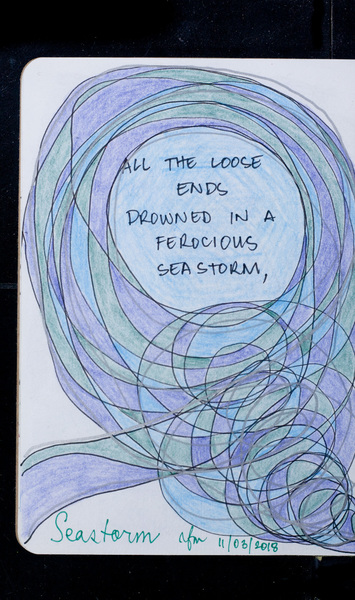 ALL THE LOOSE
ENDS
DROWNED IN A
FEROCIOUS
SEASTORM,
Seastorm afm 11/03/2018